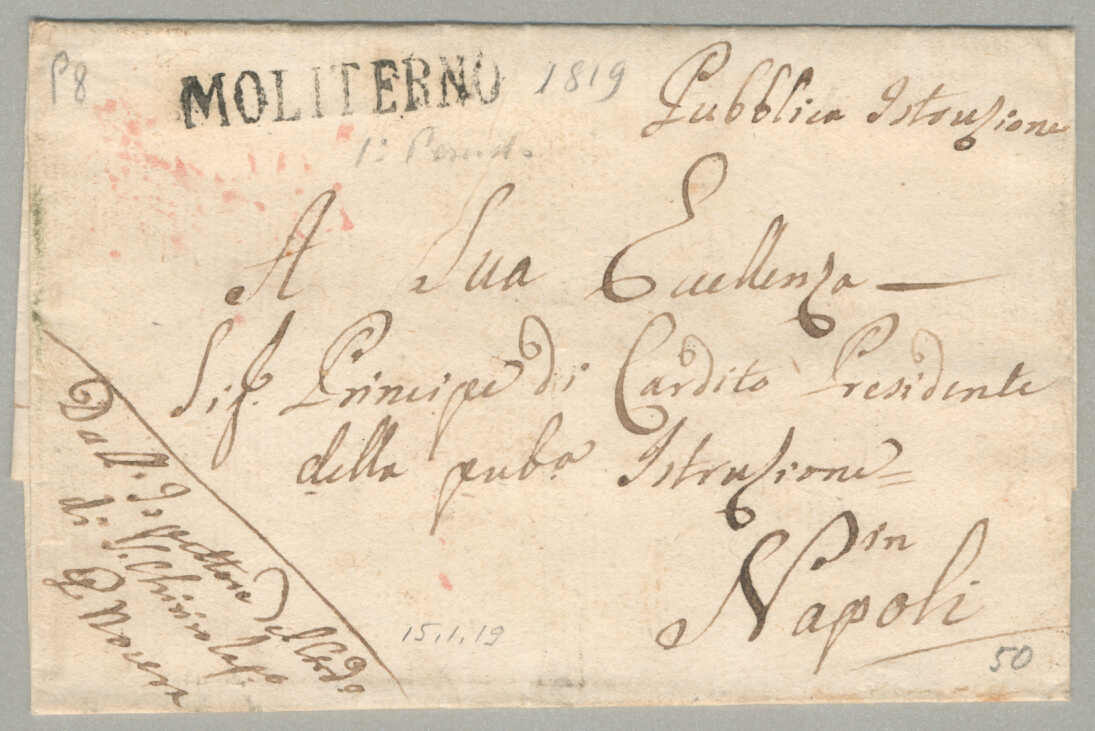 P8
MOLITERNO 1819
Pubblica Istruzione
1°
A Sua Eccellenza
Sig. Principe di Cardito Presidente
della pub.a Istruzione =
in
Napoli
Dall. Ispettore del Circ.o
di S. Chirico
P.
15.1.19
50